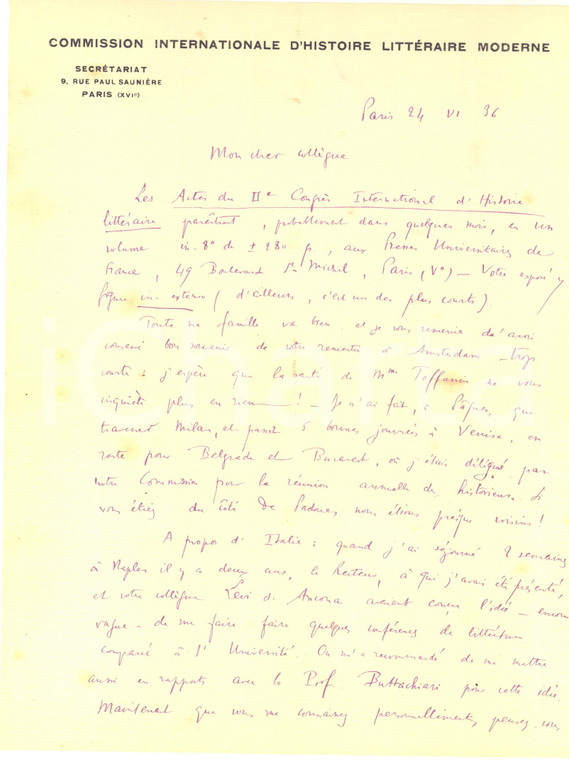 COMMISSION INTERNATIONALE D'HISTOIRE LITTÉRAIRE MODERNE
SECRÉTARIAT
9, RUE PAUL SAUNIÈRE
PARIS (XVIe)
Paris 24 VI 36
Mon cher collègue
Les Actes du IIe Congrès International d'Histoire
littéraire paraîtront, probablement dans quelques mois, en un
volume in-8° de ± 280 p., aux Presses Universitaires de
France, 49 Boulevard St Michel, Paris (Ve) — Votre exposé y
figure in-extenso (d'ailleurs, c'est un des plus courts).
Toute ma famille va bien et je vous remercie d'avoir
conservé bon souvenir de votre rencontre à Amsterdam trop
courte : j'espère que la santé de Mme Toffanin ne vous
inquiète plus en rien ! — Je n'ai fait, à Pâques, que
traverser Milan, et passer 5 bonnes journées à Venise, en
route pour Belgrade et Bucarest, où j'étais délégué par
notre Commission pour la réunion annuelle des historiens. Si
vous étiez du côté de Padoue, nous étions presque voisins !
A propos d'Italie : quand j'ai séjourné 2 semaines
à Naples il y a deux ans, le Recteur, à qui j'avais été présenté,
et votre collègue Levi d'Ancona avaient conçu l'idée — encore
vague — de me faire faire quelques conférences de littérature
comparée à l'Université. On m'a recommandé de me mettre
aussi en rapports avec le Prof. pour cette idée.
Maintenant que vous me connaissez personnellement, pensez-vous